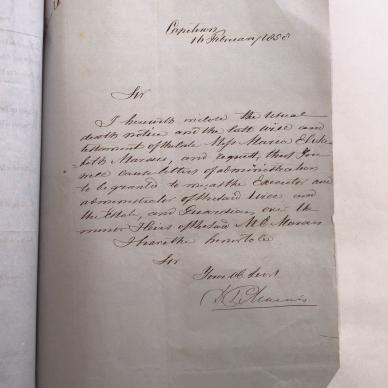 Capetown
16 February 1858
Sir
I herewith inclose the usual
death notice and the last will and
testament of the late Miss Maria Eliza-
beth Marais, and request, that you
will cause letters of administration
to be granted to me, as the Executor and
administrator of the said Will and
the Estate, and Guardian, over the
minor Heirs of the said M E Marais
I have the honor to be
Sir
Your Ob Servt
Marais